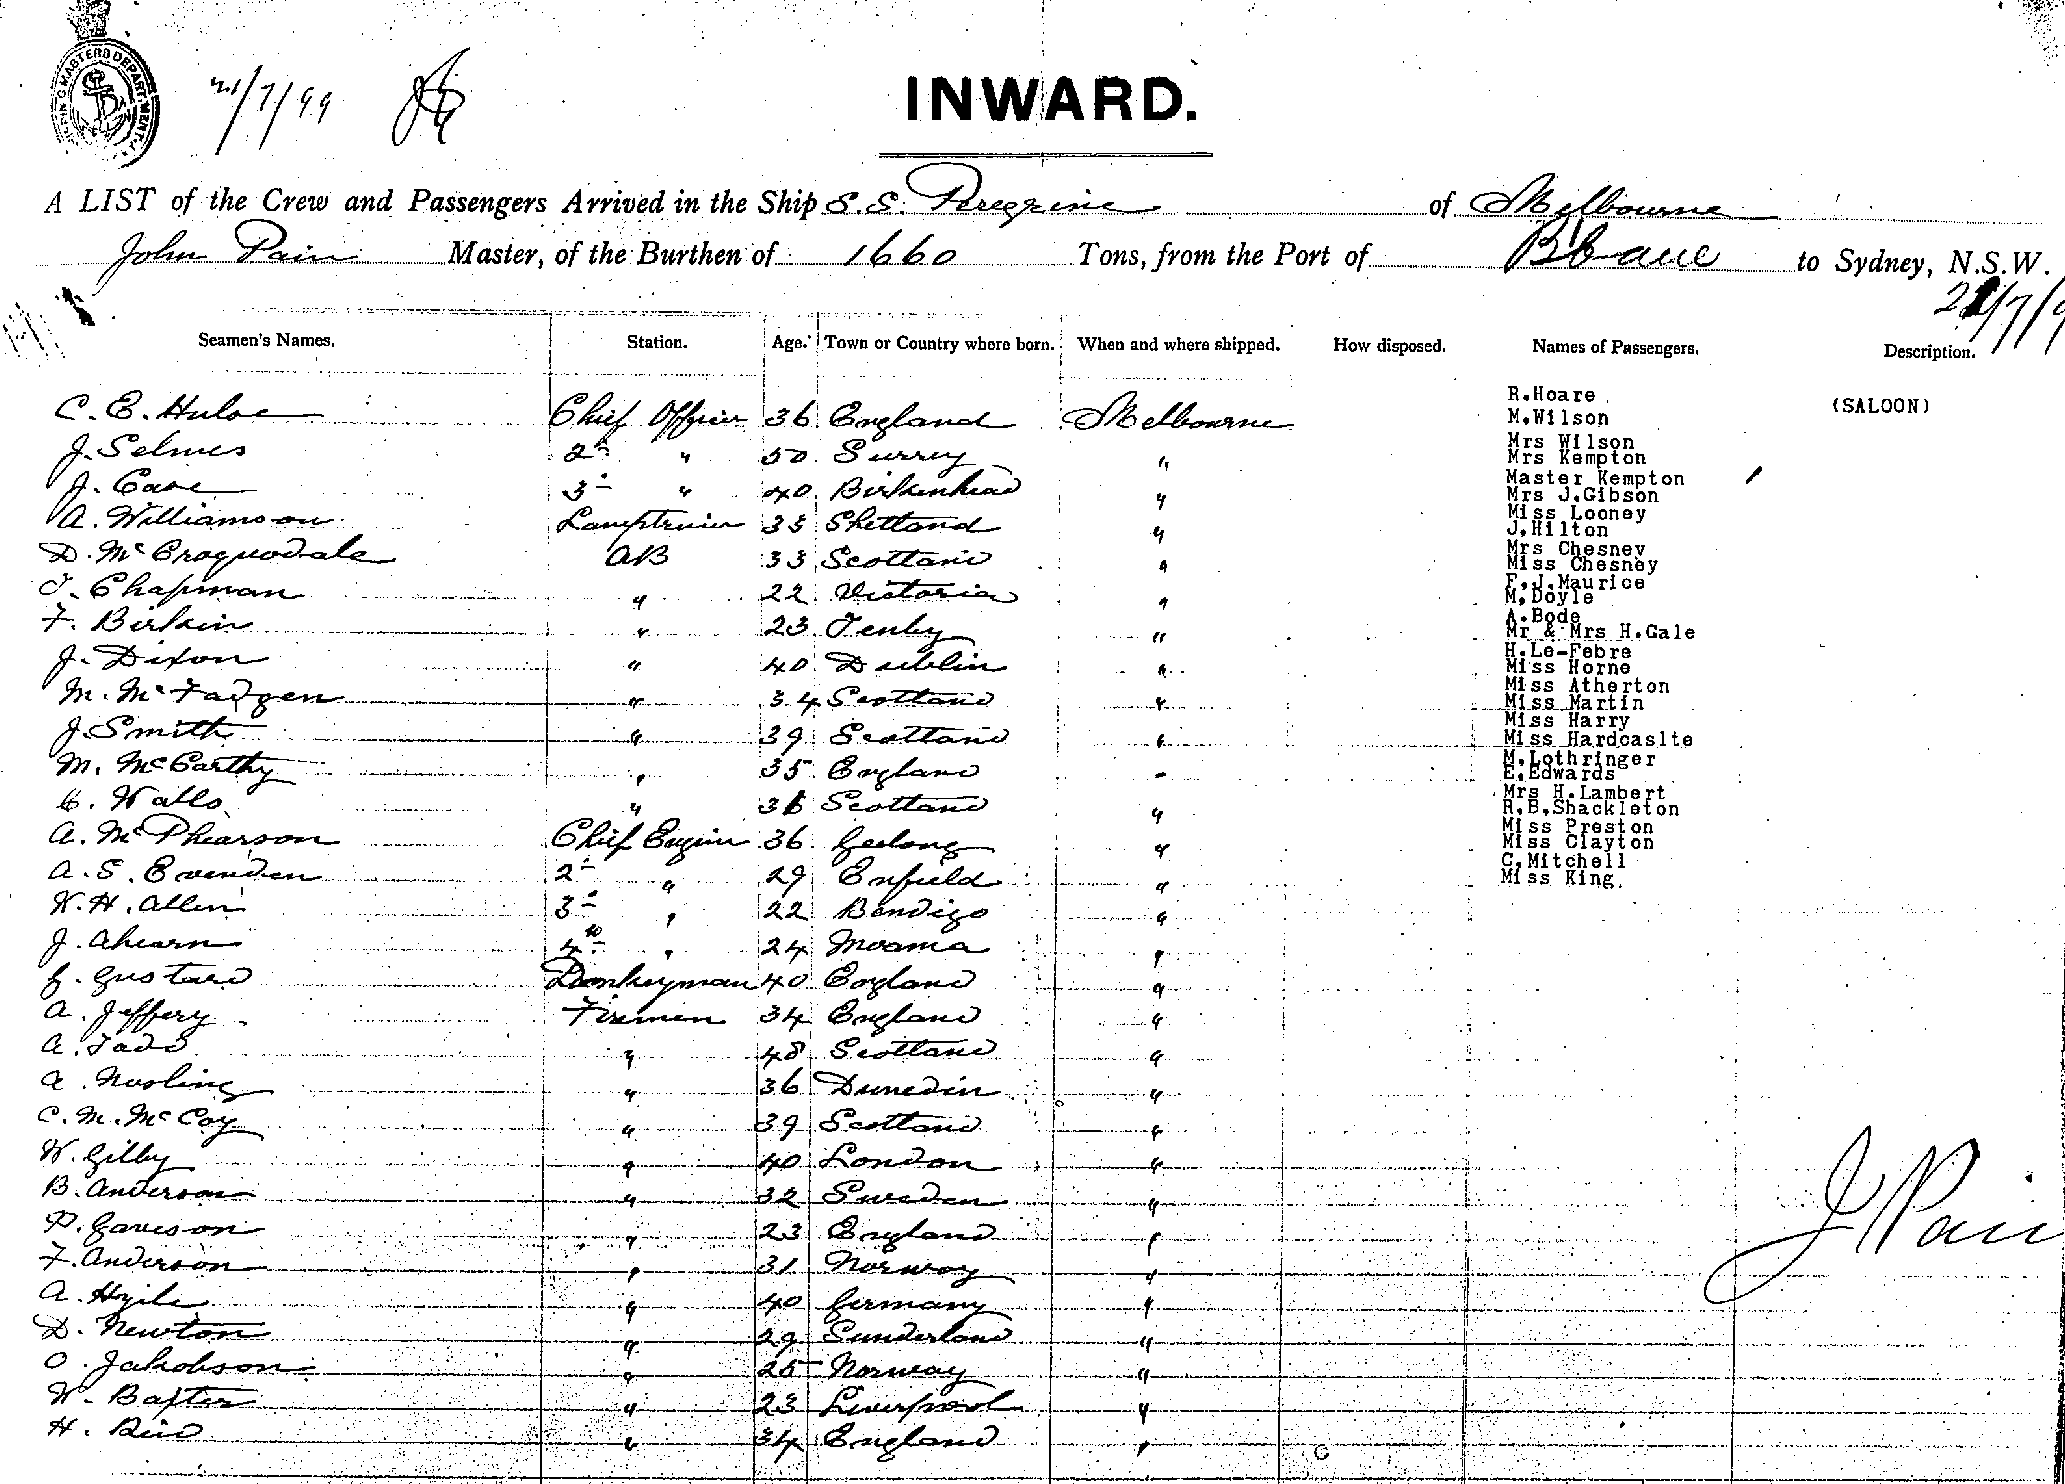 21/7/99
INWARD.
A LIST of the Crew and Passengers Arrived in the Ship S.S. Peregrine of Melbourne
John Pain Master, of the Burthen of 1660 Tons, from the Port of B'bane to Sydney, N.S.W.
Seamen's Names. Station. Age. Town or Country where born. When and where shipped. How disposed. Names of Passengers. Description.
C. E. Hulse Chief Officer 36 England Melbourne
J. Selmes 2nd " 50 Surrey "
J. Case 3 " 40 Birkenhead "
A. Williamson Lamptrimer 35 Shetland "
D. McCroquodale AB 33 Scotland "
T. Chapman " 22 Victoria "
F. Birkin " 23 Tenby "
J. Dixon " 40 Dublin "
M. McFadgen " 34 Scotland "
J. Smith " 39 Scotland "
M. McCarthy " 35 England "
C. Walls " 36 Scotland "
A. McPhearson Chief Engin 36 Geelong "
A. S. Evenden 2 " 29 Enfield "
W. H. Allen 3 " 22 Bendigo "
J. Ahearn 4th " 24 Moama "
G. Gustard Donkeyman 40 England "
A. Jeffery Firemen 34 England "
A. Tadd " 48 Scotland "
A. Nosling " 36 Dunedin "
C. M. McCoy " 39 Scotland "
W. Gilby " 40 London "
B. Anderson " 32 Sweden "
P. Gaveson " 23 England "
F. Anderson " 31 Norway "
A. " 40 Germany "
D. Newton " 29 Sunderland "
O. Jakobson " 25 Norway "
W. Baxter " 23 Liverpool "
H. Reid " 34 England "
R.Hoare (SALOON)
M.Wilson
Mrs Wilson
Mrs Kempton
Master Kempton
Mrs J.Gibson
Miss Looney
J.Hilton
Mrs Chesney
Miss Chesney
F.J.Maurice
M.Doyle
A.Bode
Mr & Mrs H.Gale
H.Le-Febre
Miss Horne
Miss Atherton
Miss Martin
Miss Harry
Miss Hardcaslte
M.Lothringer
E.Edwards
Mrs H.Lambert
R.B.Shackleton
Miss Preston
Miss Clayton
C.Mitchell
Miss King.
J Pain